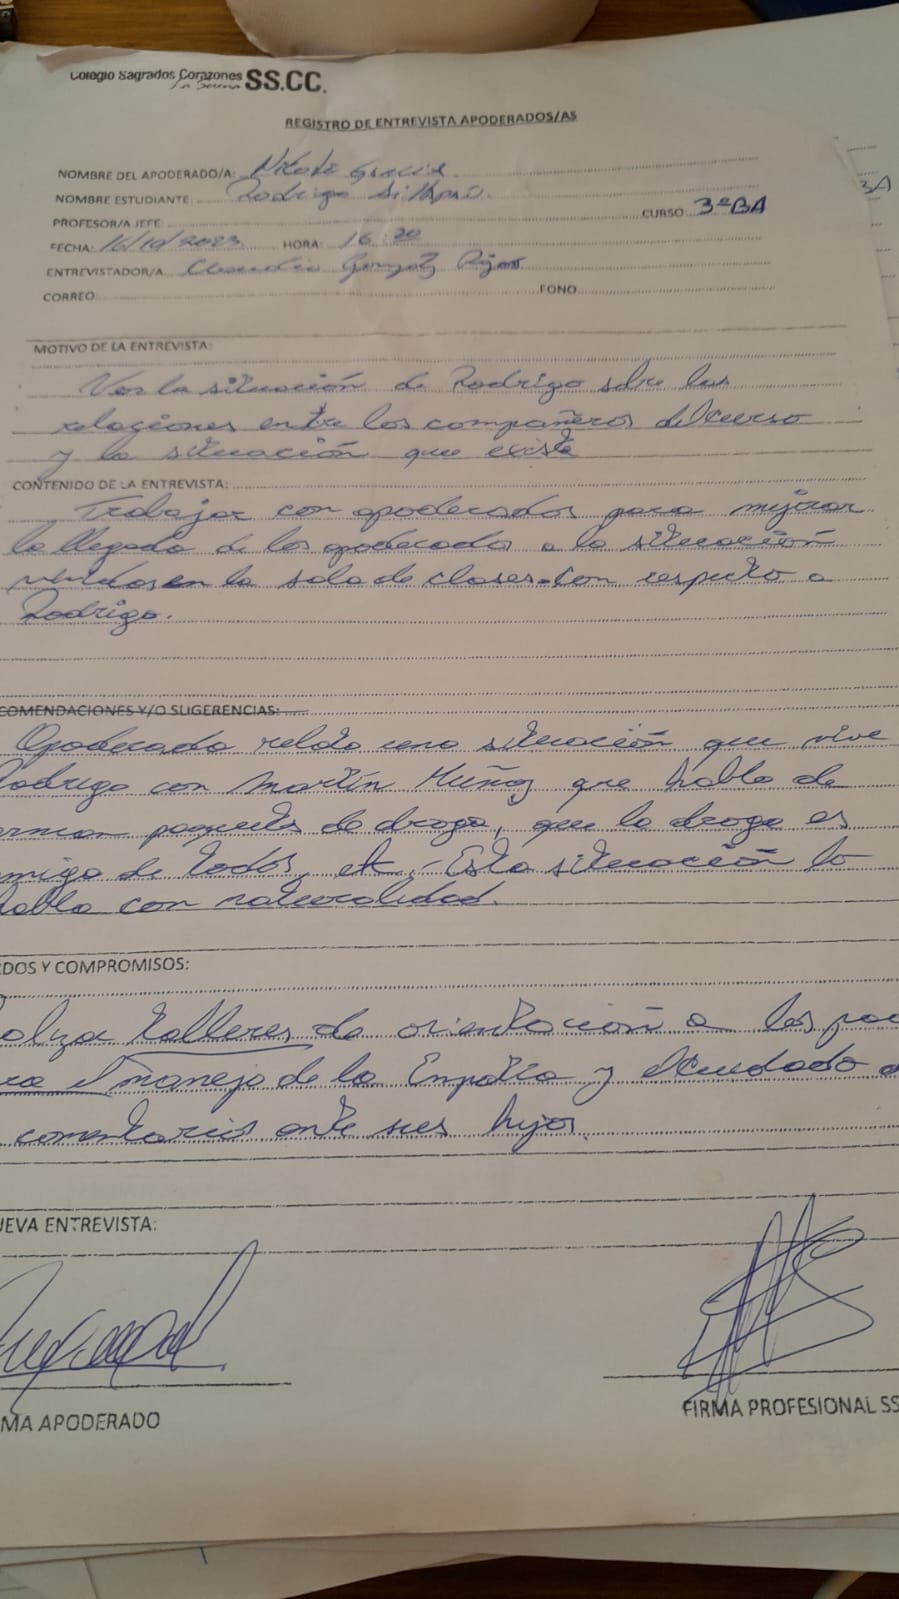 Colegio Sagrados Corazones SS.CC.
La Serena
REGISTRO DE ENTREVISTA APODERADOS/AS
NOMBRE DEL APODERADO/A: Nicole Gracia
NOMBRE ESTUDIANTE: Rodrigo
CURSO 3ºBA
PROFESOR/A JEFE:
FECHA: 16/10/2023 HORA: 16:20
ENTREVISTADOR/A Claudio
CORREO FONO
MOTIVO DE LA ENTREVISTA:
Ver la situación de Rodrigo sobre las
relaciones entre los compañeros del curso
y la situación que existe
CONTENIDO DE LA ENTREVISTA:
Trabajar con apoderados para mejorar
la llegada de los apoderados a la situación
en la sala de clases. Con respecto a
Rodrigo.
COMENDACIONES Y/O SUGERENCIAS:
Apoderado relata una situación que vive
odrigo con Martín Muñoz que habla de
paquetes de droga, que la droga es
migo de todos, etc. Esta situación lo
habla con naturalidad.
DOS Y COMPROMISOS:
talleres de orientación a los
el manejo de la Empatía y el cuidado
comentarios ante sus hijos.
UEVA ENTREVISTA:
MA APODERADO
FIRMA PROFESIONAL SS
BA